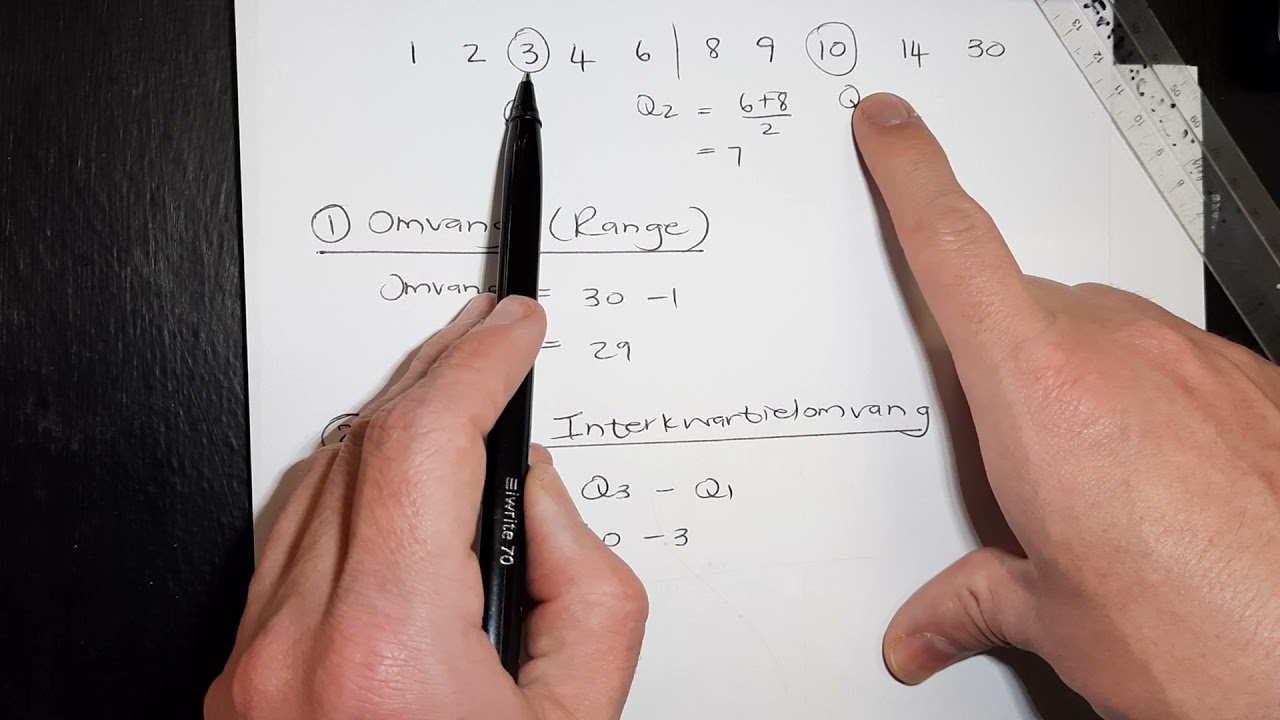 1 2 3 4 6 | 8 9 10 14 30
Q2 = 6+8/2 Q
= 7
① Omvang (Range)
Omvang = 30 - 1
= 29
Interkwartielomvang
Q3 - Q1
0 - 3
iwrite 70